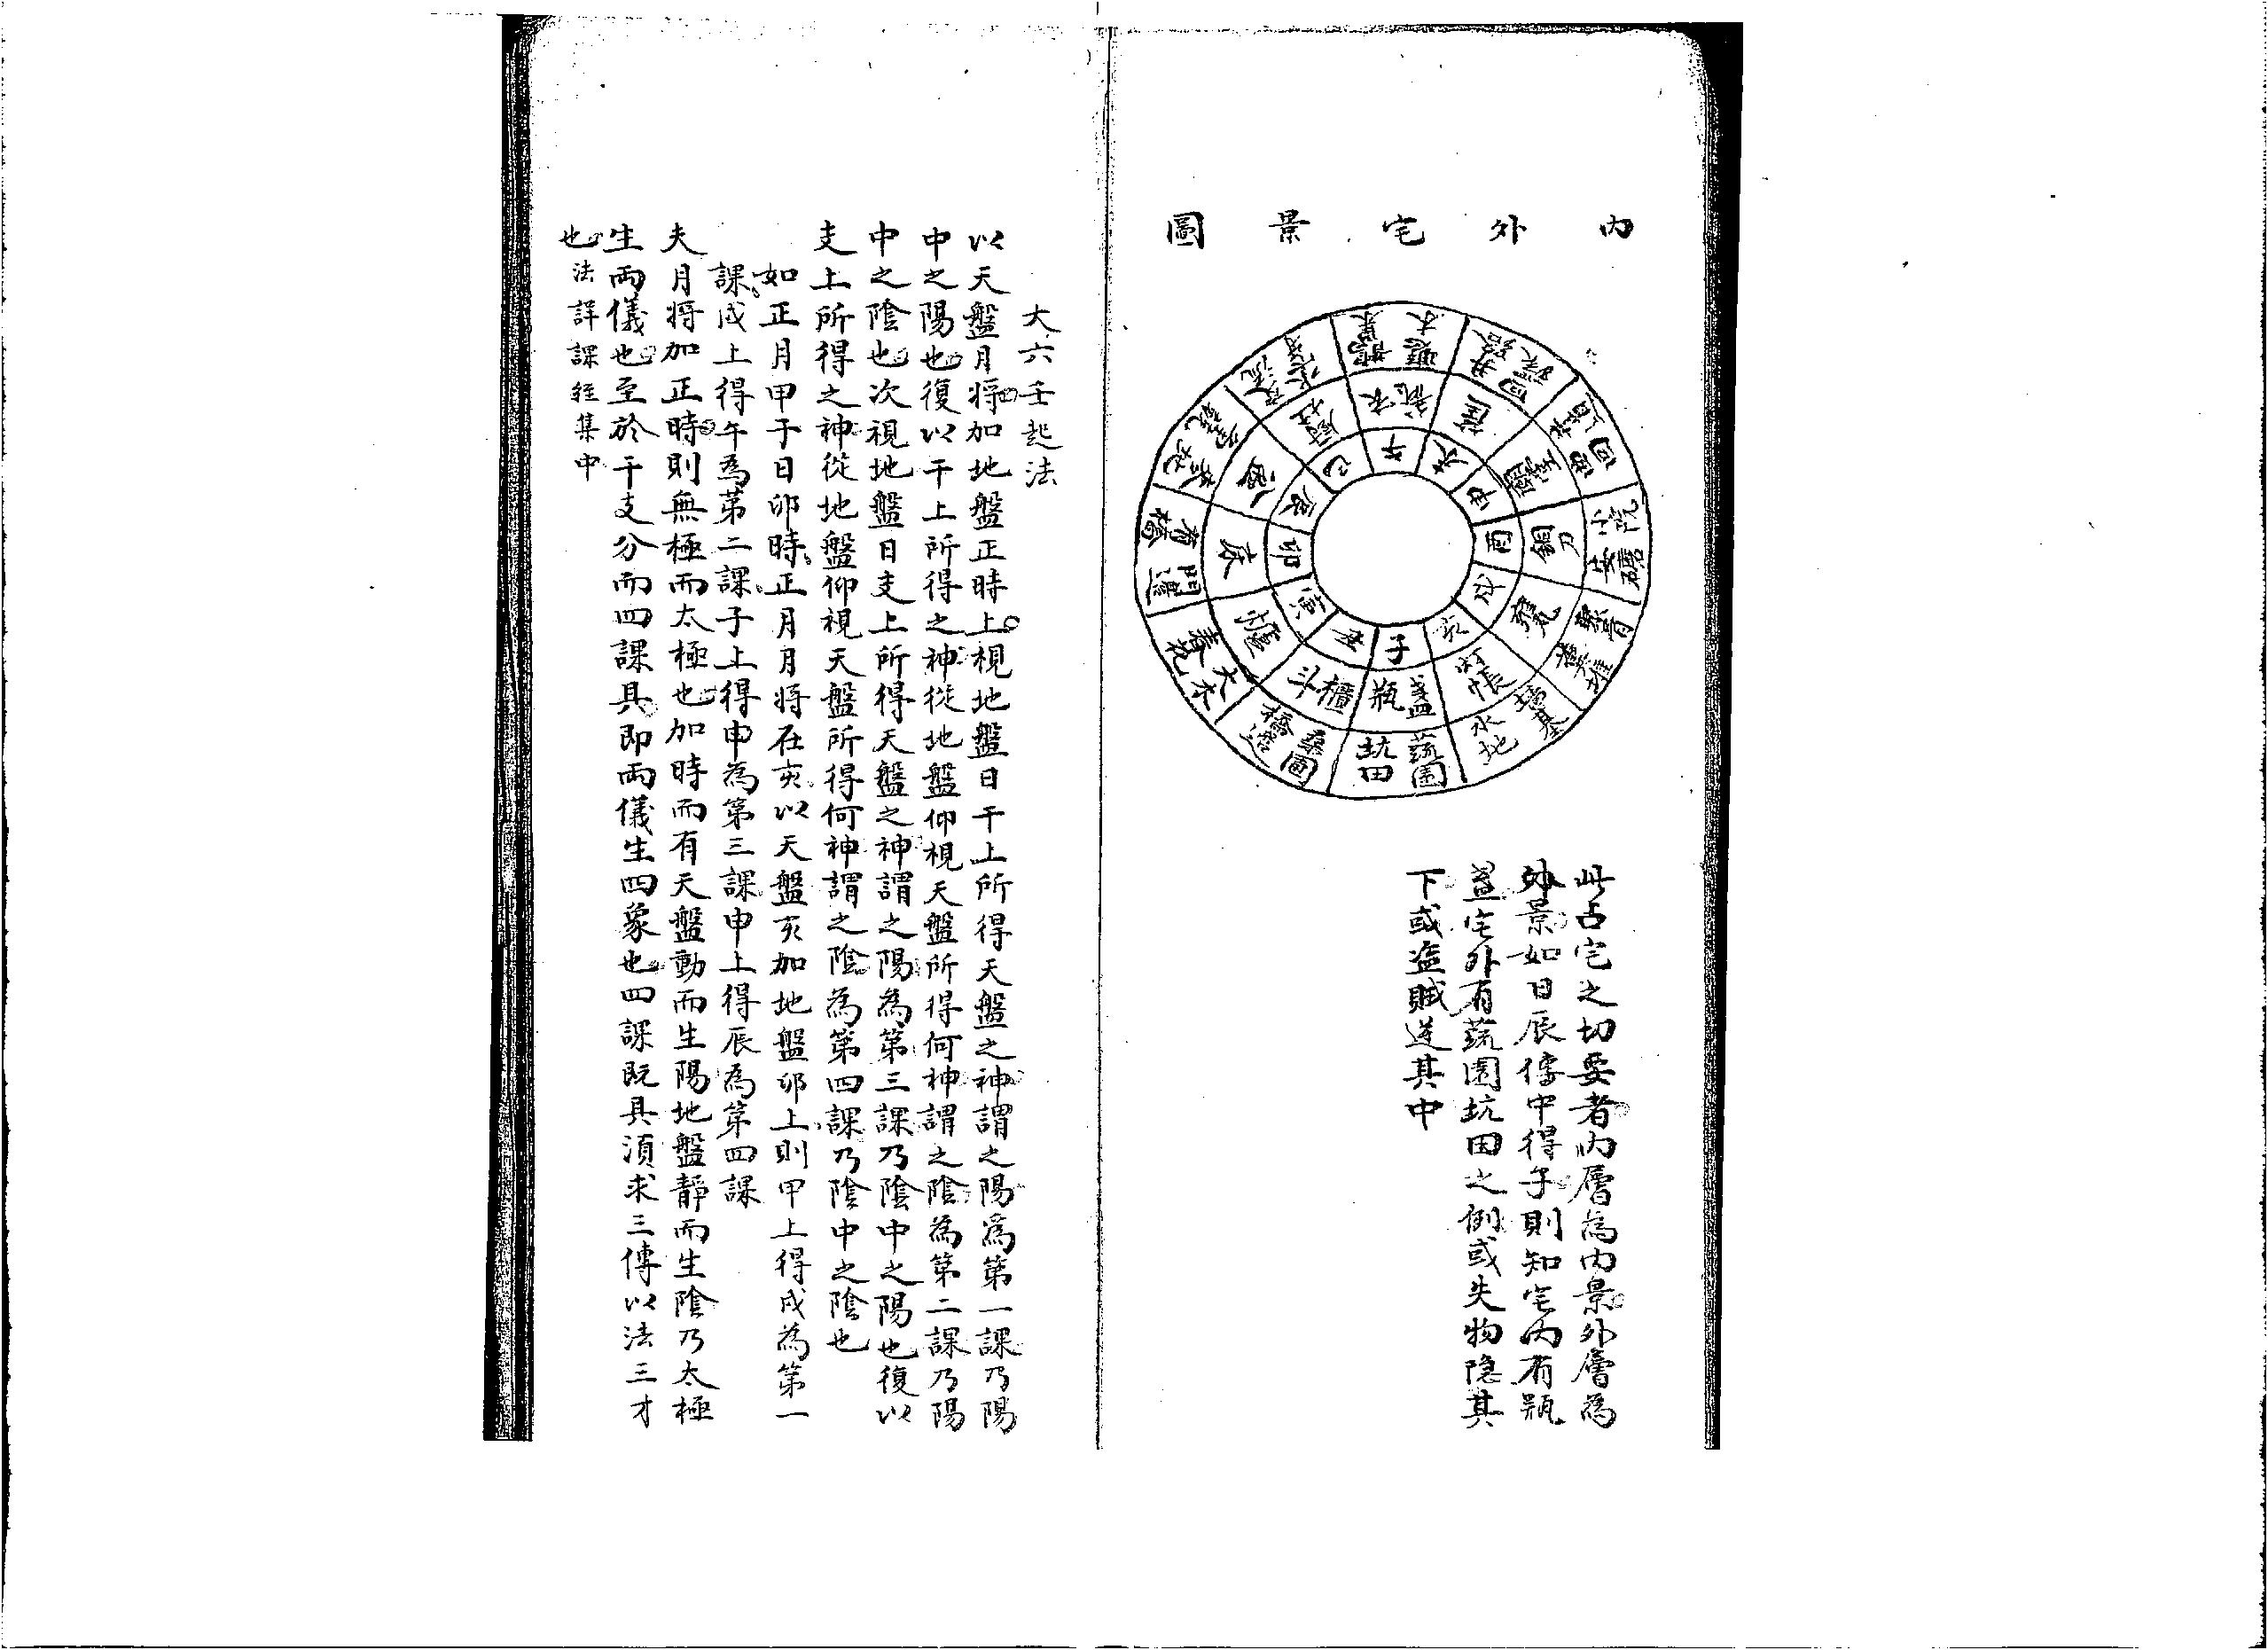 內外宅景圖
午
未
申
酉
戌
亥
子
丑
寅
卯
辰
巳
瓶盞
櫃斗
爐
床
蔬園
坑田
桑園
墻基
水地
此占宅之切要者內層為內景外層為
外景如日辰傳中得子則知宅內有瓶
盞宅外有蔬園坑田之例或失物隱其
下或盜賊逃其中
大六壬起法
以天盤月將加地盤正時上視地盤日干上所得天盤之神謂之陽為第一課乃陽
中之陽也復以干上所得之神從地盤仰視天盤所得何神謂之陰為第二課乃陽
中之陰也次視地盤日支上所得天盤之神謂之陽為第三課乃陰中之陽也復以
支上所得之神從地盤仰視天盤所得何神謂之陰為第四課乃陰中之陰也
如正月甲子日卯時正月月將在亥以天盤亥加地盤卯上則甲上得戌為第一
課戌上得午為第二課子上得申為第三課申上得辰為第四課
夫月將加正時則無極而太極也加時而有天盤動而生陽地盤靜而生陰乃太極
生兩儀也至於干支分而四課具即兩儀生四象也四課既具須求三傳以法三才
也法詳課經集中